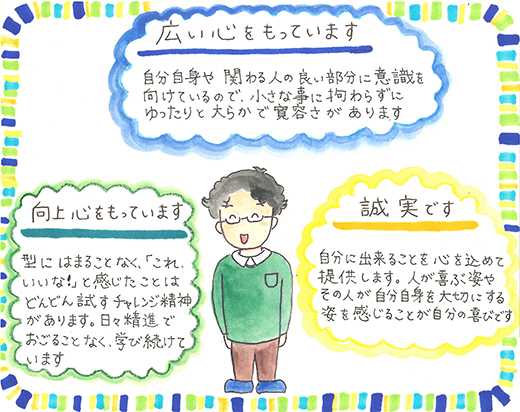 広い心をもっています
自分自身や 関わる人の良い部分に意識を
向けているので、小さな事に拘わらずに
ゆったりと大らかで寛容さが あります
向上心をもっています
型に はまることなく、「これ、
いいな!」と感じたことは
どんどん試すチャレンジ精神
があります。日々精進で
おごることなく、学び続けて
います
誠実です
自分に出来ることを心を込めて
提供します。人が喜ぶ姿や
その人が自分自身を大切にする
姿を感じることが自分の喜びです